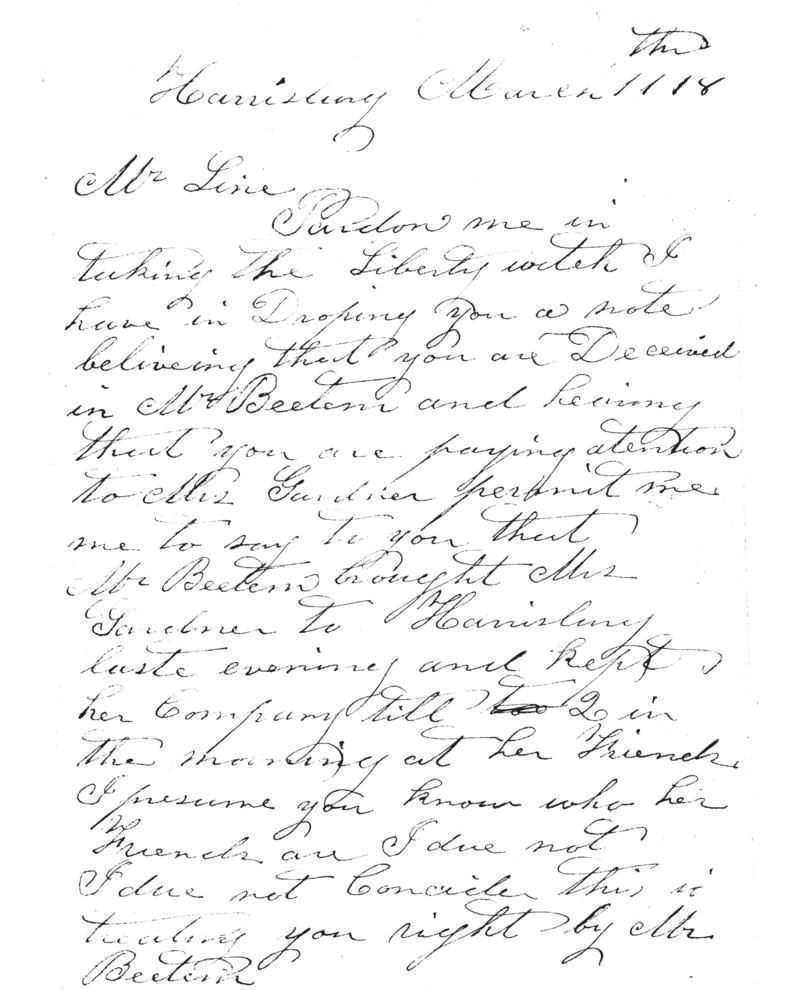 th
Harrisburg March 11 18
Mr Line
Pardon me in
taking the Liberty witch I
have in Droping you a note
beliveing that you are Deceived
in Mr Beetem and hearing
that you are paying atention
to Mrs Gardner permit me
me to say to you that
Mr Beetem brought Mrs
Gardner to Harrisburg
laste evening and kept
her Company till too 2 in
the morning at her Friends
I presume you know who her
Friends are I due not
I due not Concider this is
treating you right by Mr
Beetem